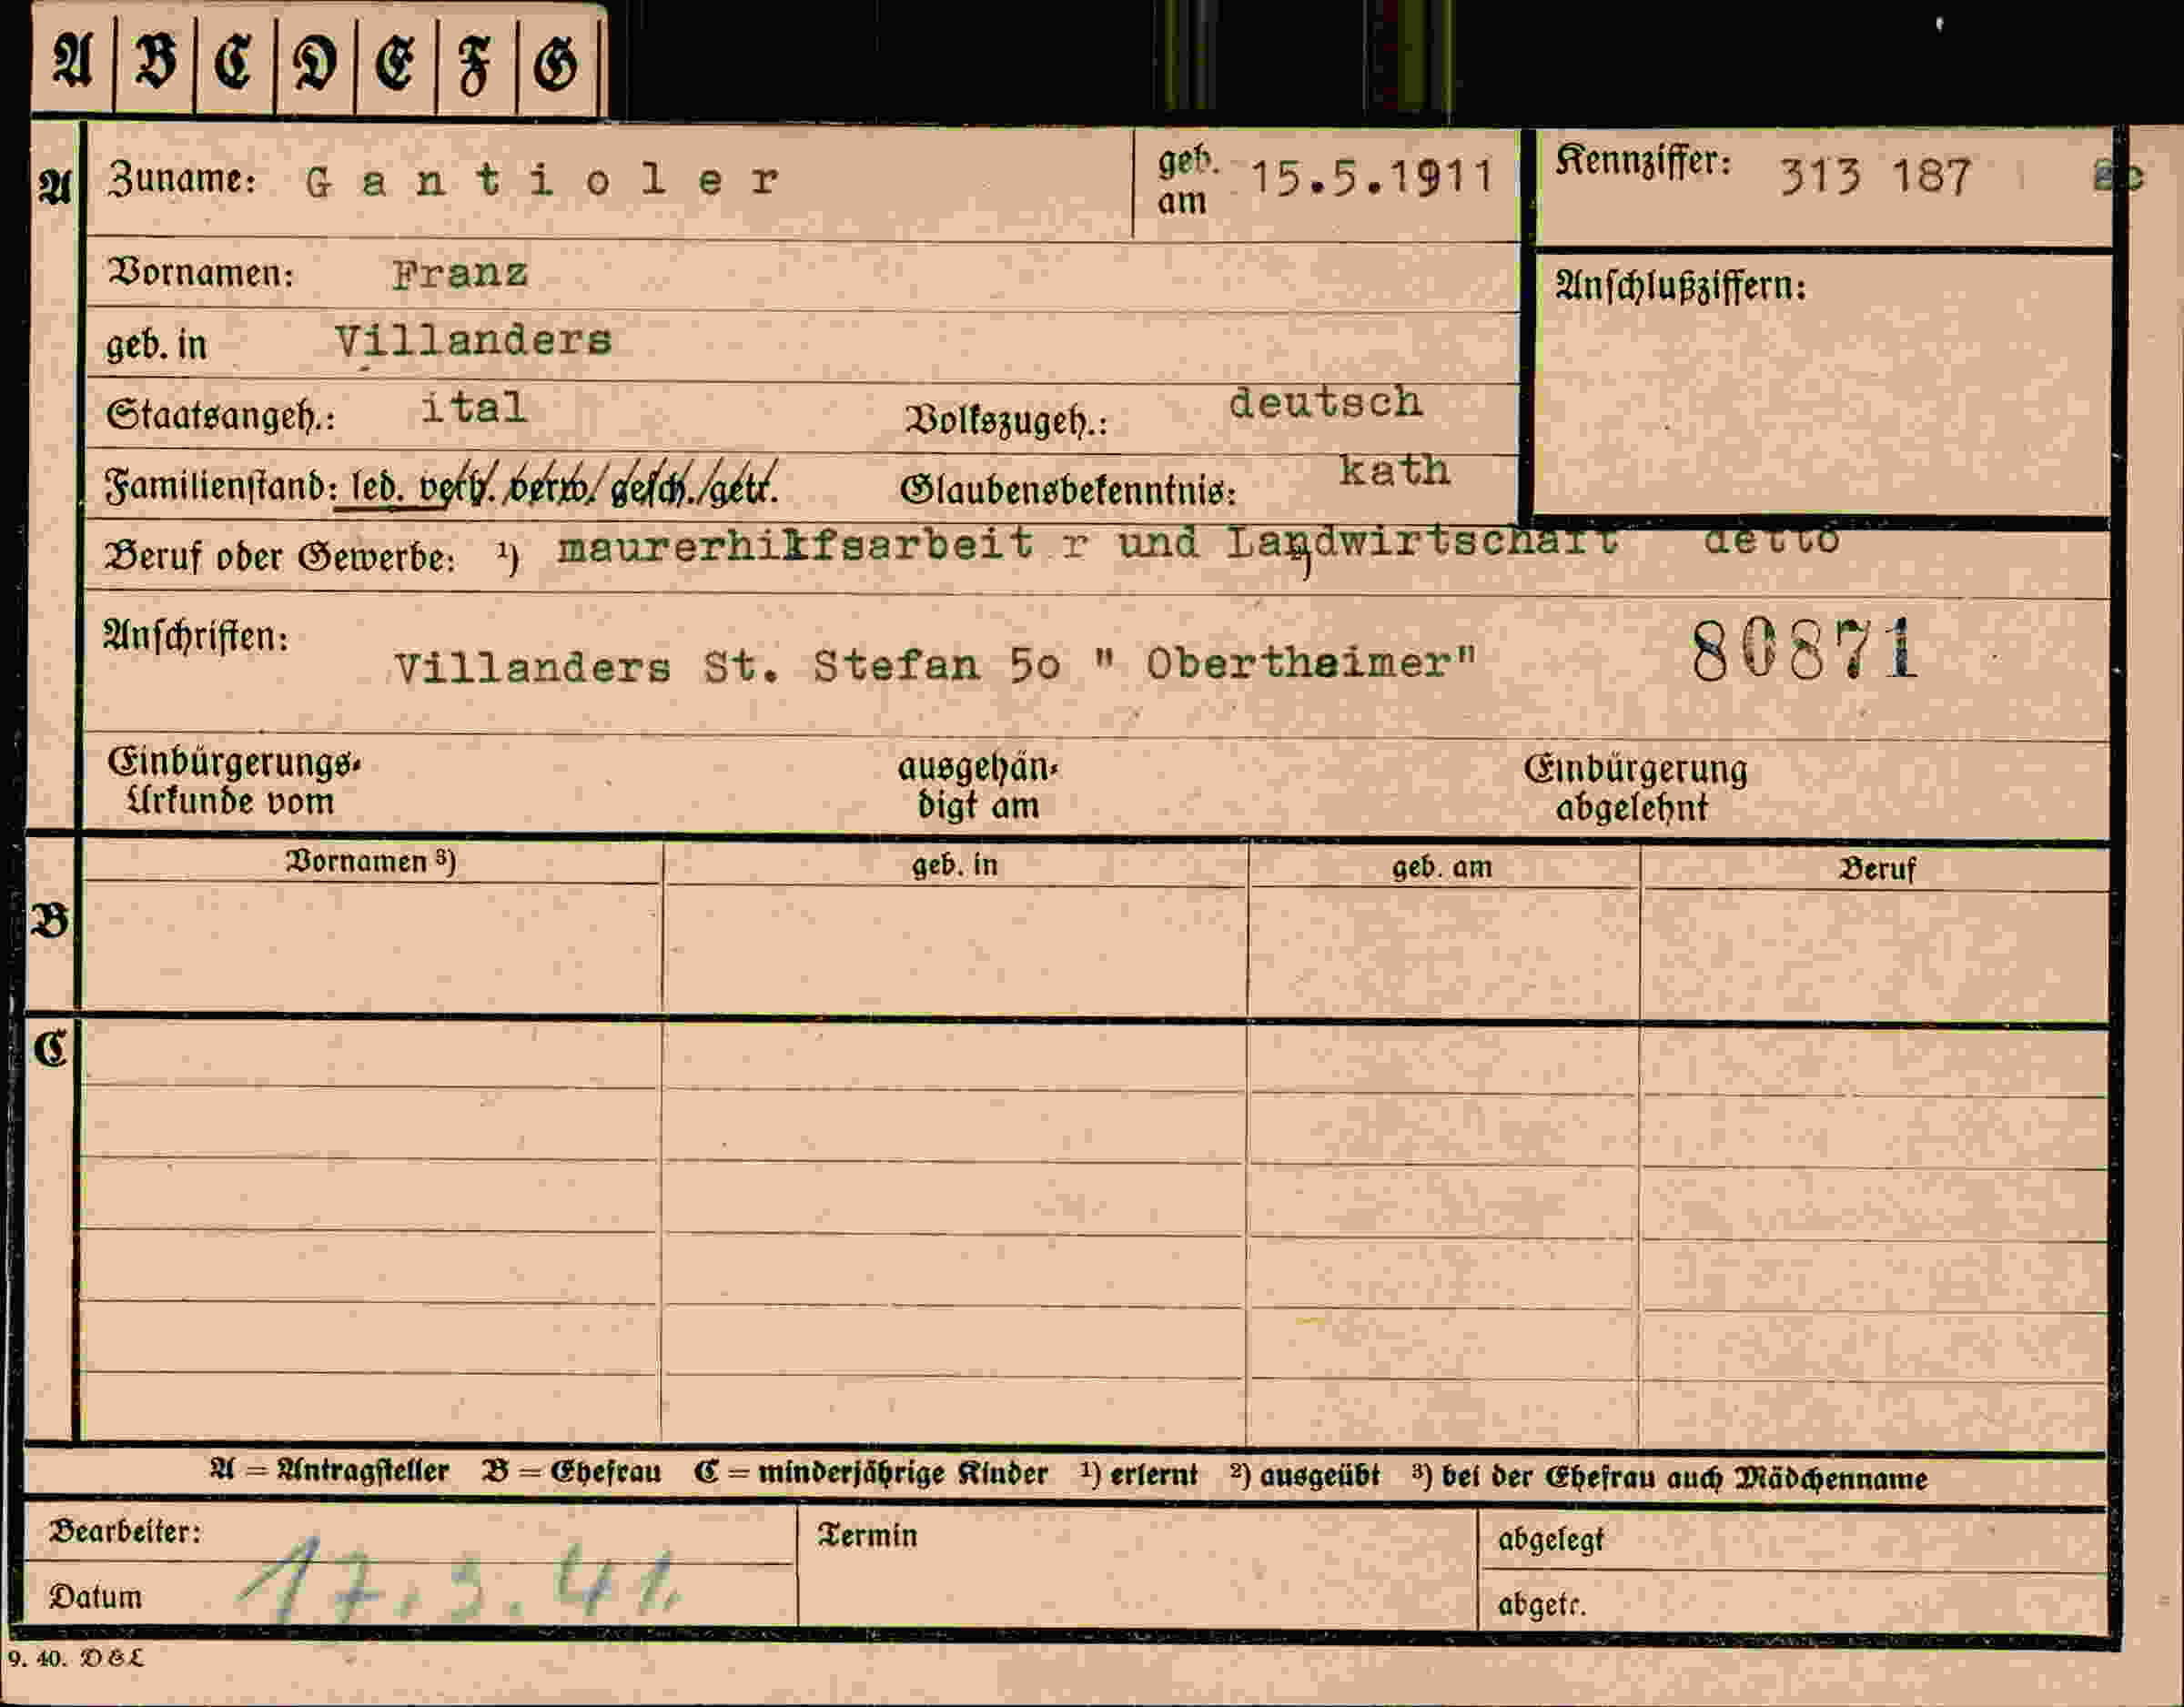 A B C D E F G
A Zuname: Gantioler geb. am 15.5.1911 Kennziffer: 313 187
Vornamen: Franz
Anschlußziffern:
geb. in Villanders
Staatsangeh.: ital Volkszugeh.: deutsch
Familienstand: led. verh. verw. gesch. getr. Glaubensbekenntnis: kath
Beruf oder Gewerbe: ¹) maurerhilfsarbeit r und Landwirtschaft detto
Anschriften: Villanders St. Stefan 5o " Obertheimer" 80871
Einbürgerungs- ausgehän- Einbürgerung
Urkunde vom digt am abgelehnt
Vornamen ³) geb. in geb. am Beruf
B
C
A = Antragsteller B = Ehefrau C = minderjährige Kinder ¹) erlernt ²) ausgeübt ³) bei der Ehefrau auch Mädchenname
Bearbeiter: Termin abgelegt
Datum 17.3.41. abgetr.
9. 40. D&L